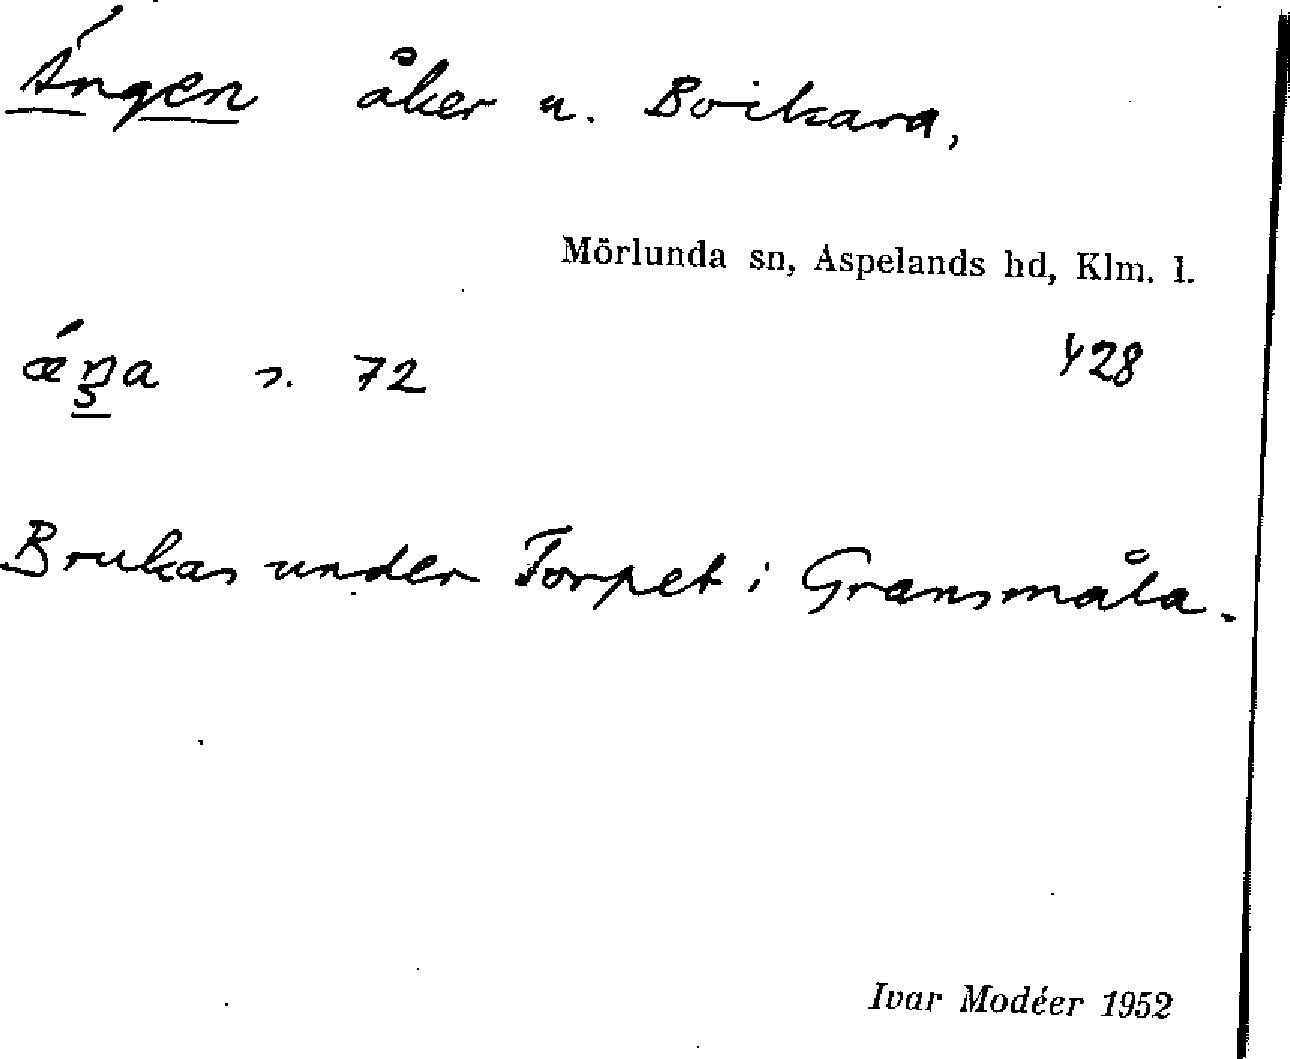 Ängen åker u. Boikara,
Mörlunda sn, Aspelands hd, Klm. l.
s. 72 428
Brukas under Torpet i Gransmåla.
Ivar Modéer 1952